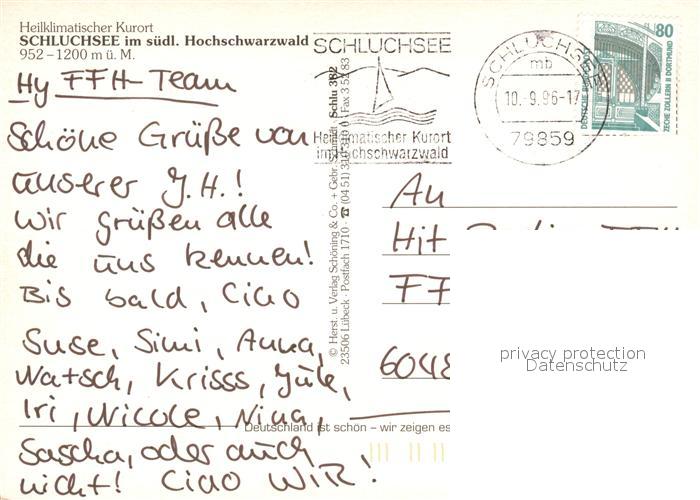 Heilklimatischer Kurort
SCHLUCHSEE im südl. Hochschwarzwald
952–1200 m ü. M.
Hy FFH-Team
Schöne Grüße von
unserer J.H.!
Wir grüßen alle
die uns kennen!
Bis bald, Ciao
Suse, Simi, Anna,
Watsch, Krisss, Jule,
Iri, Nicole, Nina,
Sascha, oder auch
nicht! Ciao WIR!
SCHLUCHSEE
Heilklimatischer Kurort
im Hochschwarzwald
SCHLUCHSEE
mb
10.-9.96-17
79859
80
DEUTSCHE BUNDESPOST
ZECHE ZOLLERN II DORTMUND
© Herst. u. Verlag Schöning & Co. + Gebr. Schmidt · Schlu 382
23506 Lübeck · Postfach 1710 · ☎ (04 51) 310 310 · Fax 3 51 83
An
Hit
FF
6048
Deutschland ist schön – wir zeigen es
privacy protection
Datenschutz